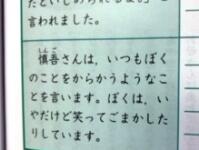 たといじめられるよ。」と
言われました。
慎吾さんは、いつもぼく
のことをからかうようなこ
とを言います。ぼくは、い
やだけど笑ってごまかした
りしています。